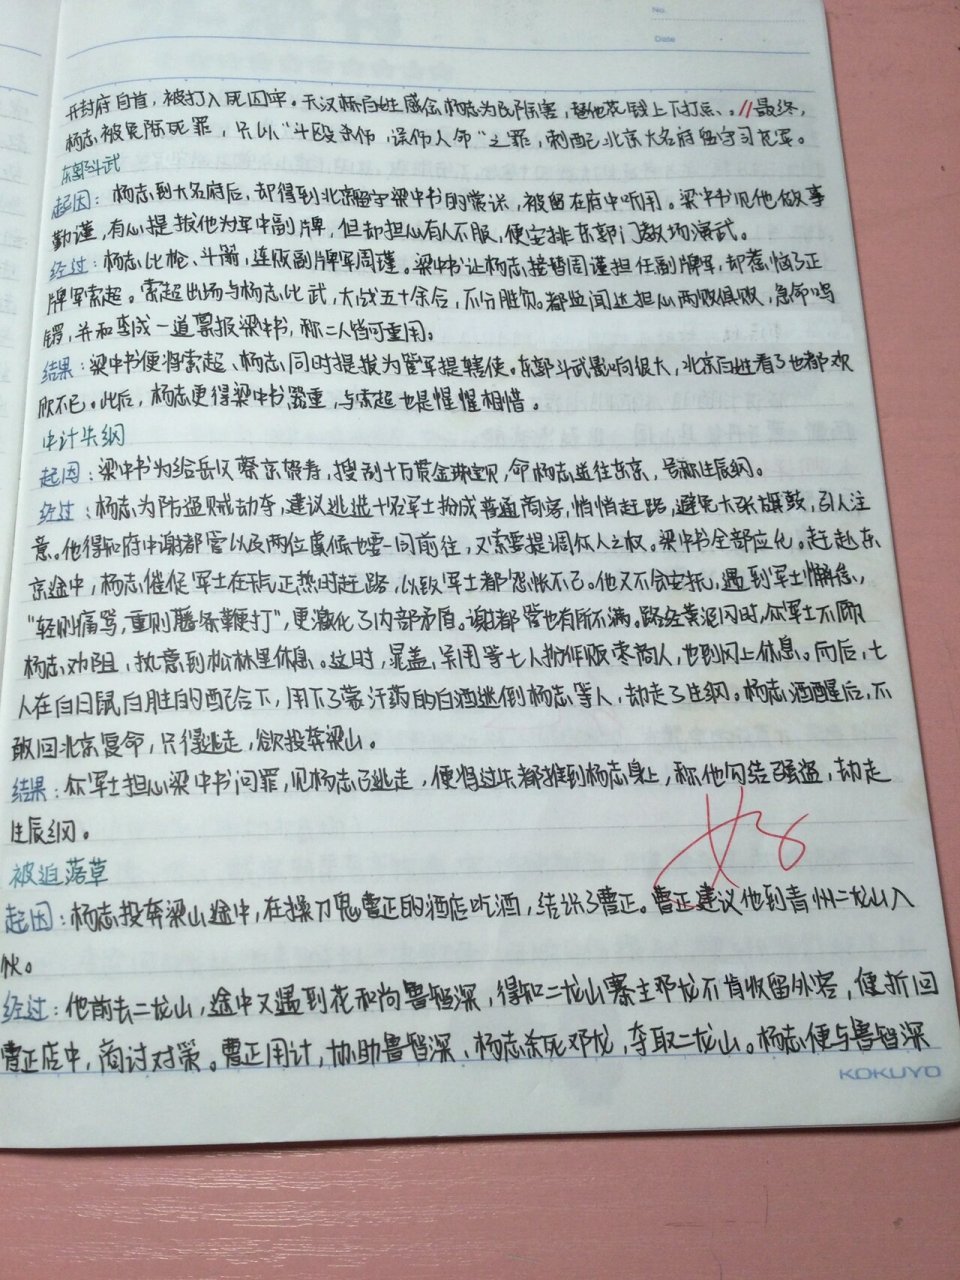 No.
Date
开封府自首，被打入死囚牢。天汉桥百姓感念杨志为民除害，替他花钱上下打点。最终，
杨志被免除死罪，只以“斗殴杀伤，误伤人命”之罪，刺配北京大名府留守司充军。
东郭斗武
起因：杨志到大名府后，却得到北京留守梁中书的赏识，被留在府中听用。梁中书见他做事
勤谨，有心提拔他为军中副牌，但却担心有人不服，便安排东郭门教场演武。
经过：杨志比枪、斗箭，连败副牌军周瑾。梁中书让杨志接替周谨担任副牌军，却惹恼了正
牌军索超。索超出场与杨志比武，大战五十余合，不分胜负。都监闻达担心两败俱败，急命鸣
锣，并和李成一道禀报梁中书，称二人皆可重用。
结果：梁中书便将索超、杨志同时提拔为管军提辖使。东郭斗武影响很大，北京百姓看了也都欢
欣不已。此后，杨志更得梁中书器重，与索超也是惺惺相惜。
中计失纲
起因：梁中书为给岳父蔡京贺寿，搜刮十万贯金珠宝贝，命杨志送往东京，号称生辰纲。
经过：杨志为防盗贼劫夺，建议挑选十名军士扮成普通商客，悄悄赶路，避免大张旗鼓，引人注
意。他得知府中谢都管以及两位虞候也要一同前往，又索要提调众人之权。梁中书全部应允。赶赴东
京途中，杨志催促军士在天正热时赶路，以致军士都怨怅不已。他又不会安抚，遇到军士懈怠，
“轻则痛骂，重则藤条鞭打”，更激化了内部矛盾。谢都管也有所不满。路经黄泥冈时，众军士不顾
杨志劝阻，执意到松林里休息。这时，晁盖、吴用等七人扮作贩枣商人，也到冈上休息。而后，七
人在白日鼠白胜的配合下，用下了蒙汗药的白酒迷倒杨志等人，劫走了生纲。杨志酒醒后，不
敢回北京复命，只得逃走，欲投奔梁山。
结果：众军士担心梁中书问罪，见杨志已逃走，便将过失都推到杨志身上，称他勾结强盗，劫走
生辰纲。
好
被迫落草
起因：杨志投奔梁山途中，在操刀鬼曹正的酒店吃酒，结识了曹正。曹正建议他到青州二龙山入
伙。
经过：他前去二龙山，途中又遇到花和尚鲁智深，得知二龙山寨主邓龙不肯收留外客，便折回
曹正店中，商讨对策。曹正用计，协助鲁智深、杨志杀死邓龙，夺取二龙山。杨志便与鲁智深
KOKUYO